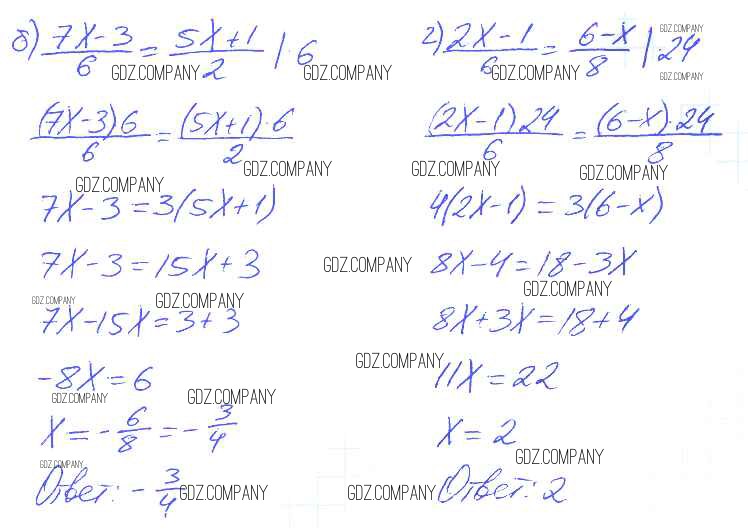 б) (7x-3)/6 = (5x+1)/2 | · 6
GDZ.COMPANY GDZ.COMPANY
((7x-3)6)/6 = ((5x+1)·6)/2
GDZ.COMPANY
GDZ.COMPANY
7x-3=3(5x+1)
7x-3=15x+3
GDZ.COMPANY
GDZ.COMPANY GDZ.COMPANY
7x-15x=3+3
-8x=6
GDZ.COMPANY GDZ.COMPANY
x=-6/8=-3/4
GDZ.COMPANY
Ответ: -3/4
GDZ.COMPANY
г) (2x-1)/6 = (6-x)/8 | · 24
GDZ.COMPANY
GDZ.COMPANY GDZ.COMPANY
((2x-1)24)/6 = ((6-x)·24)/8
GDZ.COMPANY GDZ.COMPANY
4(2x-1)=3(6-x)
8x-4=18-3x
GDZ.COMPANY
8x+3x=18+4
GDZ.COMPANY
11x=22
x=2
GDZ.COMPANY
GDZ.COMPANY
Ответ: 2